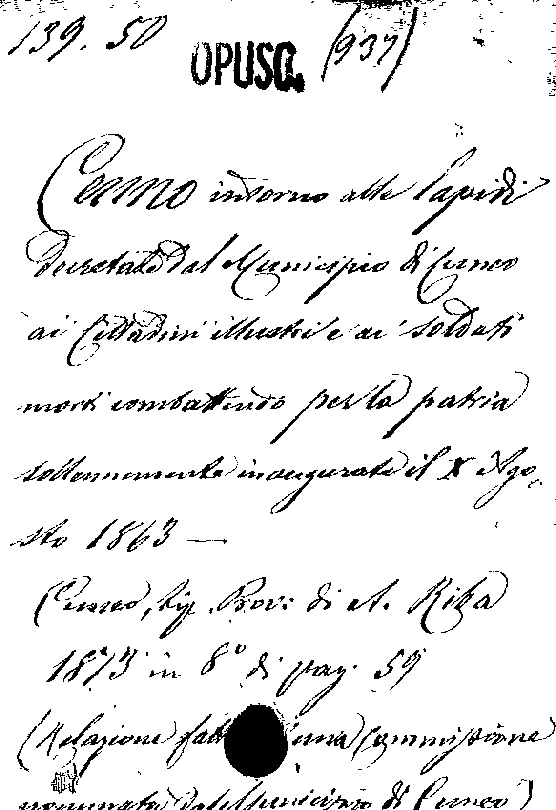 139. 50 OPUSC. (937)
Cenno intorno alle lapidi
decretate dal Municipio di Cuneo
ai Cittadini illustri e ai soldati
morti combattendo per la patria
sollennemente inaugurate il X Ago-
sto 1863 —
Cuneo, tip. Prov: di A. Riba
1873 in 8° di pag. 59
(Relazione una Commissione
nominata dal Municipio di Cuneo)